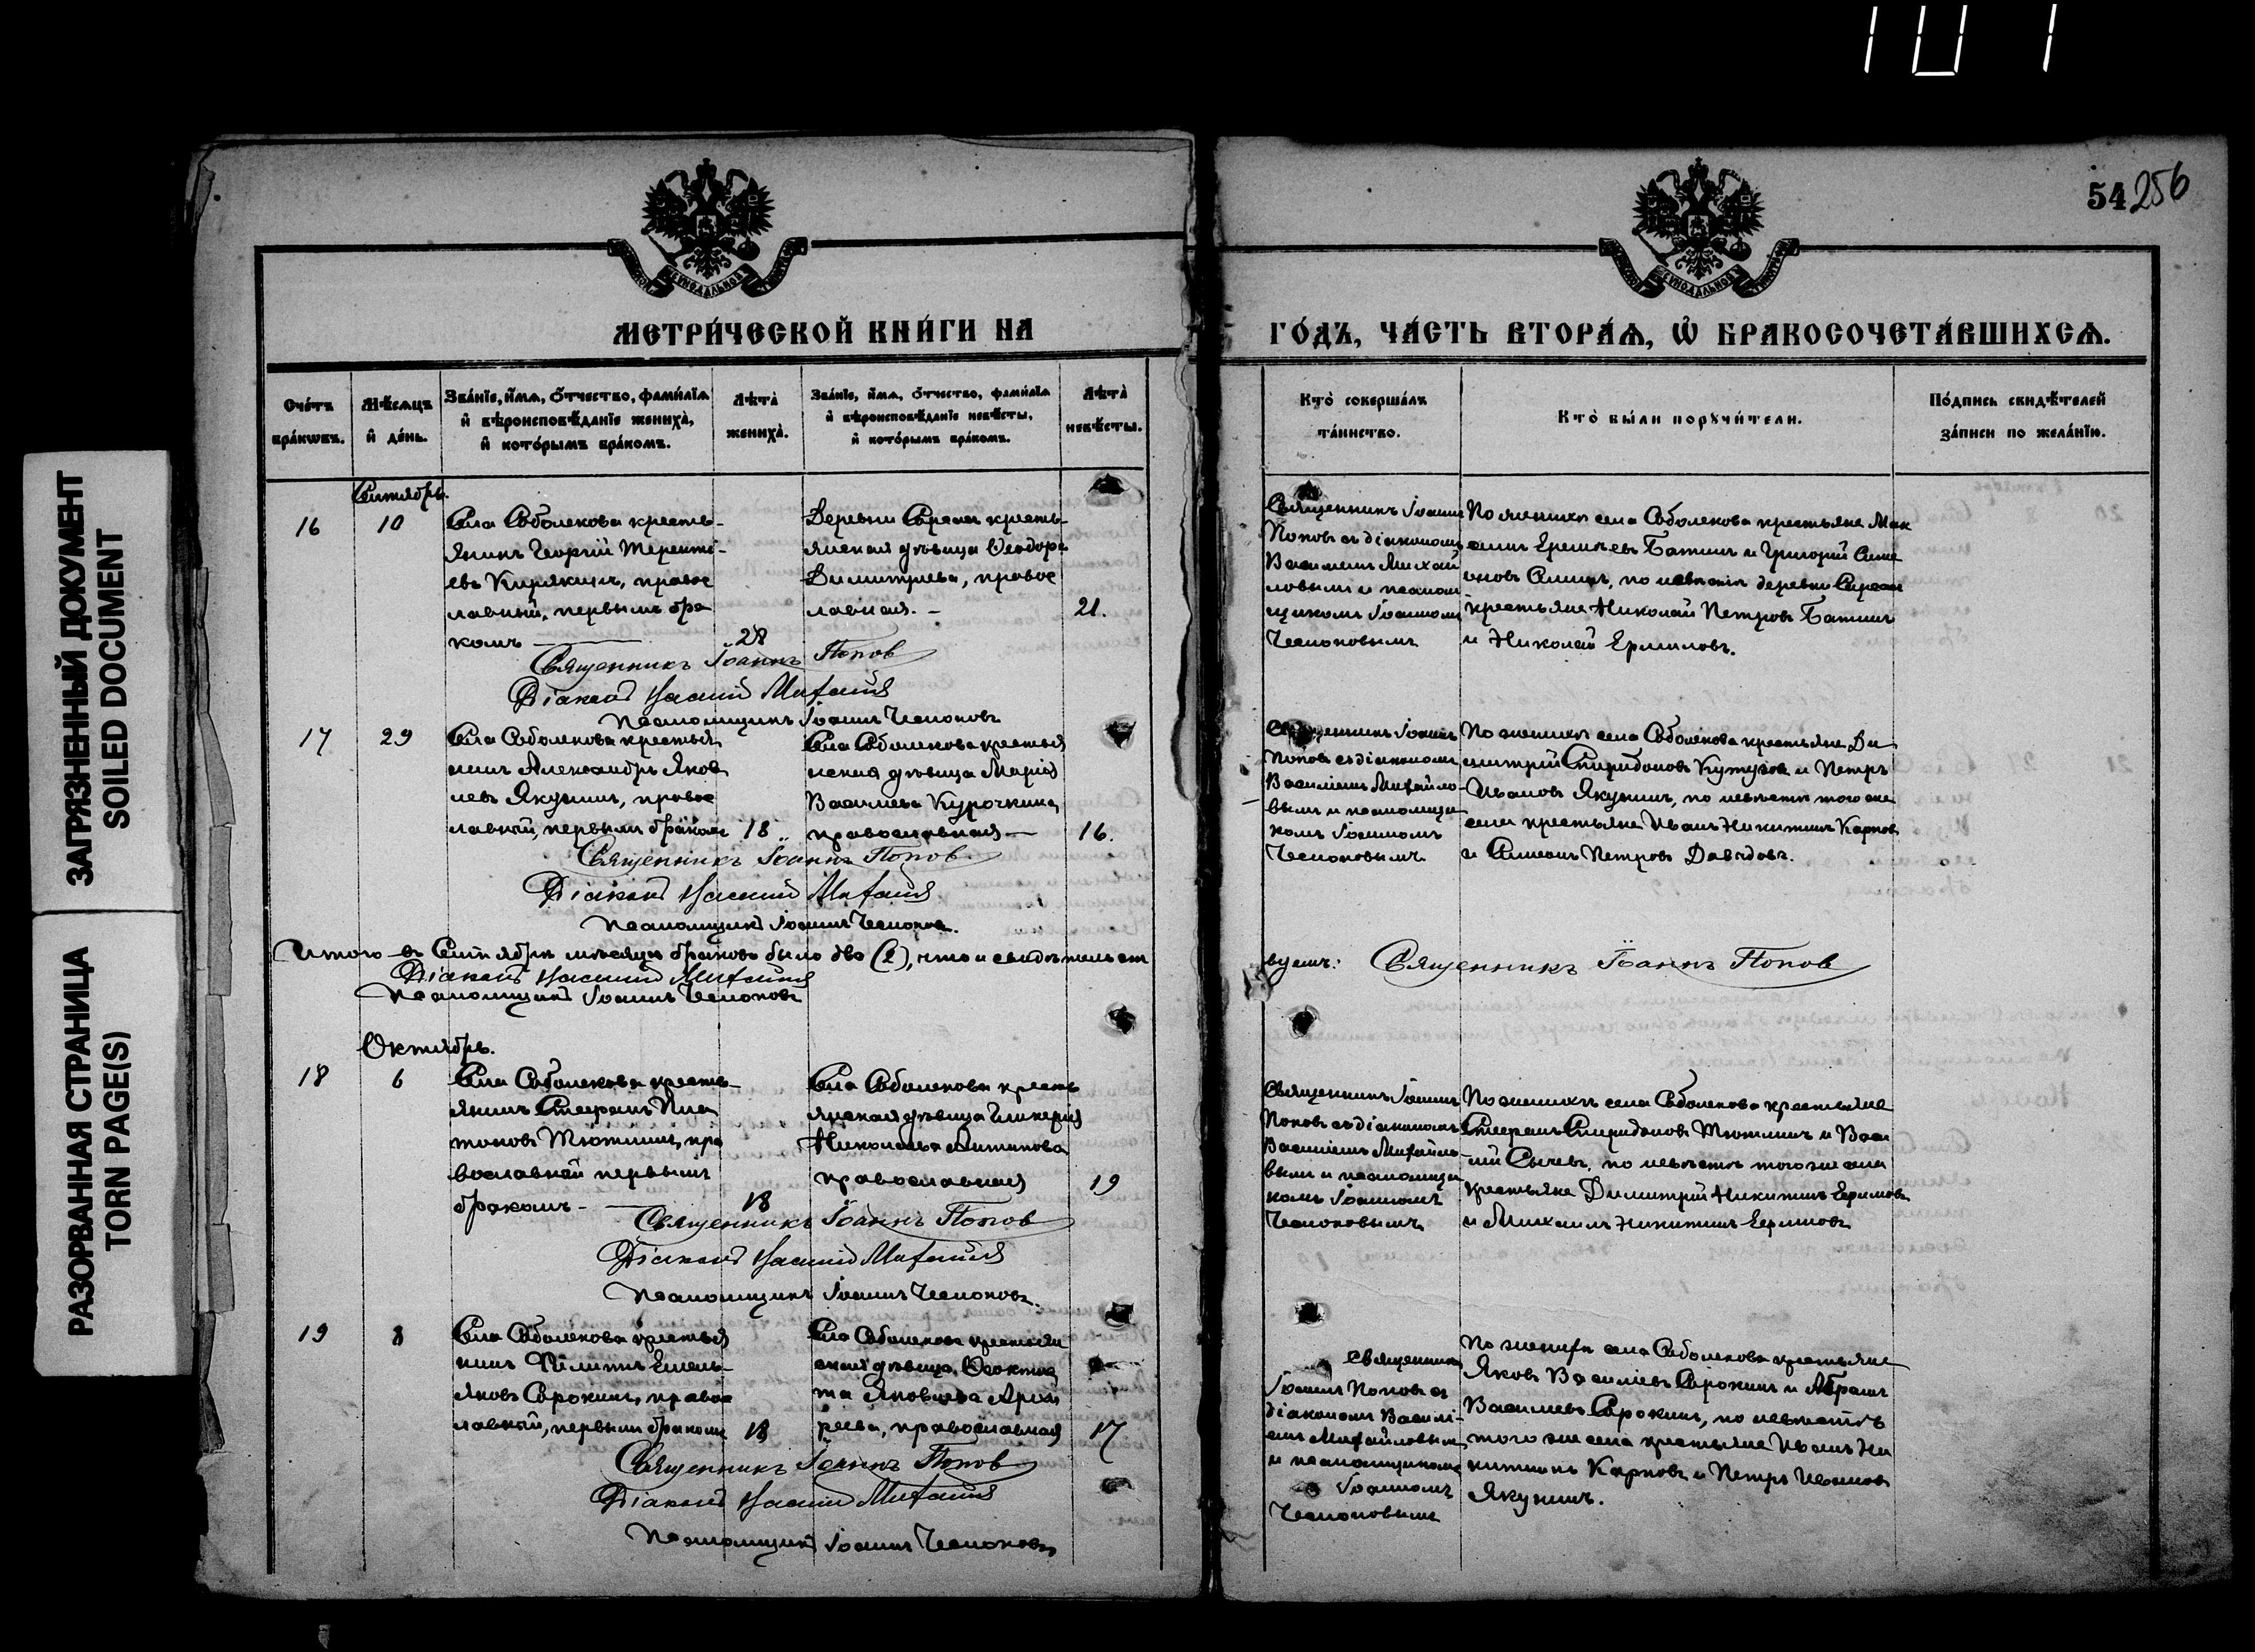 101
54 256
ЗАГРЯЗНЕННЫЙ ДОКУМЕНТ
SOILED DOCUMENT
РАЗОРВАННАЯ СТРАНИЦА
TORN PAGE(S)
МЕТРИ́ЧЕСКОЙ КНИ́ГИ НА
ГО́ДЪ, ЧА́СТЬ ВТОРА́Ѧ, Ѽ БРАКОСОЧЕТА́ВШИХСѦ.
Сче́тъ бра́кѡвъ.
Мѣ́сѧцъ и҆ де́нь.
Зва́нїе, и҆́мѧ, ѻ҆́тчество, фами́лїѧ
и҆ вѣроисповѣ́данїе жениха̀,
и҆ кото́рымъ бра́комъ.
Лѣта̀ жениха̀.
Зва́нїе, и҆́мѧ, ѻ҆́тчество, фами́лїѧ
и҆ вѣроисповѣ́данїе невѣ́сты,
и҆ кото́рымъ бра́комъ.
Лѣта̀ невѣ́сты.
Кто̀ соверша́лъ
та́инство.
Кто̀ бы́ли порꙋчи́тели.
По́дпись свидѣ́телей
за́писи по жела́нїю.
Сентябрь.
16
10
Села Соболекова кресть-
янинъ Георгій Теренті-
евъ Кирякинъ, правос
лавный, первымъ бра
комъ
28
Деревни крестьянская дѣвица Ѳеодора
Димитріева, правос
лавная. -
21.
Священникъ Іоаннъ
Поповъ съ діакономъ
Василіемъ Михай
ловымъ и псалом
щикомъ Іоанномъ
По женихѣ села Соболекова крестьяне Мак
симъ Батинъ и Григорій Симе
оновъ по невѣстѣ деревни
крестьяне Николай Петровъ Батинъ
и Николай Ермиловъ.
Священникъ Іоаннъ Попов
Діаконъ Василій Михайлов
Псаломщикъ Іоаннъ
17
29
Села Соболекова крестья
нинъ Александръ Яков
левъ Якунинъ, правос
лавный, первымъ бракомъ
18
Села Соболекова крестья
нская дѣвица Марія
Васильева Курочкина,
православная
16.
Священникъ Іоаннъ
Поповъ съ діакономъ
Василіемъ Михайло
вымъ и псаломщи
комъ Іоанномъ
По женихѣ села Соболекова крестьяне Ди
митрій Спиридоновъ Кутузовъ и Петръ
Ивановъ Якунинъ, по невѣстѣ того же
села крестьяне Иванъ Никитинъ Карповъ
и Симеонъ Петровъ Давыдовъ.
Священникъ Іоаннъ Попов
Діаконъ Василій Михайлов
Псаломщикъ Іоаннъ
Итого въ Сентябрѣ мѣсяцѣ браковъ было два (2), что и свидѣтельст
вуемъ: Священникъ Іоаннъ Попов
Діаконъ Василій Михайлов
Псаломщикъ Іоаннъ
Октябрь.
18
6
Села Соболекова кресть-
янинъ Стефанъ Пла
тоновъ Тютинъ, пра
вославный первымъ
бракомъ -
18
Села Соболекова кресть
янская дѣвица Гликерія
Николаева
православная
19
Священникъ Іоаннъ
Поповъ съ діакономъ
Василіемъ Михайло
вымъ и псаломщи
комъ Іоанномъ
По женихѣ села Соболекова крестьяне
Стефанъ Спиридоновъ Тютинъ и Васи
лій Сычевъ, по невѣстѣ того же села
крестьяне Димитрій Никитинъ
и Михаилъ Никитинъ
Священникъ Іоаннъ Попов
Діаконъ Василій Михайлов
Псаломщикъ Іоаннъ
19
8
Села Соболекова крестья
нинъ Филиппъ Емель-
яновъ Сорокинъ, правос
лавный, первымъ бракомъ
18
Села Соболекова крестьян
ская дѣвица Ѳеоктис
та Яковлева
православная
17
Священникъ
Іоаннъ Поповъ съ
діакономъ Василі-
емъ Михайловымъ
и псаломщикомъ
Іоанномъ
По женихѣ села Соболекова крестьяне
Яковъ Васильевъ Сорокинъ и Абрамъ
Васильевъ Сорокинъ, по невѣстѣ
того же села крестьяне Иванъ Ни
китинъ Карповъ и Петръ Ивановъ
Якунинъ.
Священникъ Іоаннъ Попов
Діаконъ Василій Михайлов
Псаломщикъ Іоаннъ